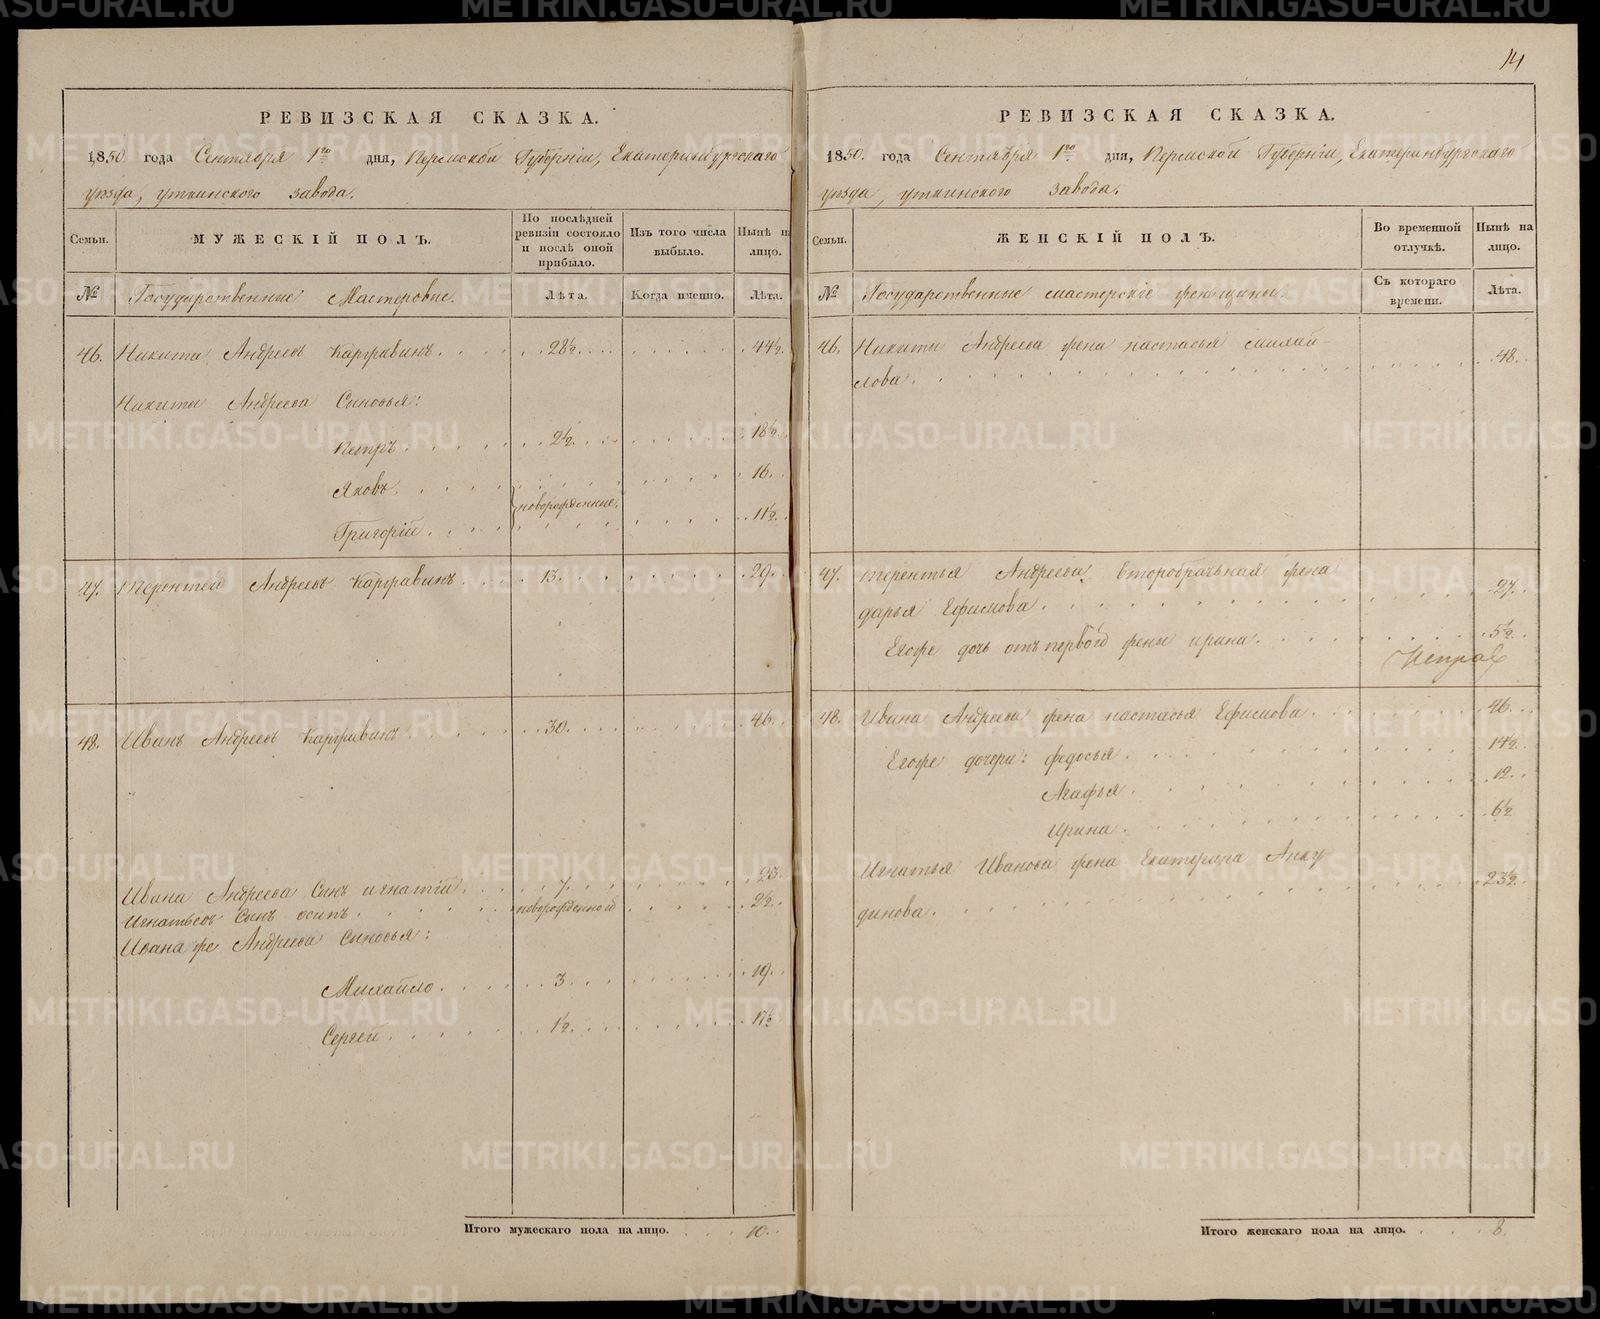 14
РЕВИЗСКАЯ СКАЗКА.
1850. года Сентября 1го дня, Пермской Губернiи, Екатеринбургскаго
уѣзда, уткинского завода.
Семьи.
МУЖЕСКIЙ ПОЛЪ.
По послѣдней ревизiи состояло и послѣ оной прибыло.
Изъ того числа выбыло.
Нынѣ на лицо.
№
Государственные Мастеровые.
Лѣта.
Когда именно.
Лѣта.
46. Никита Андреевъ Каргавинъ. 28½. 44½.
Никиты Андреева Сыновья:
Петръ. 2½. 18½.
Яковъ. 16.
новорожденные.
Григорiй. 11½.
47. Терентей Андреевъ Каргавинъ. 13. 29.
48. Иванъ Андреевъ Каргавинъ. 30. 46.
Ивана Андреева Сынъ игнатiй. 7. 23.
Игнатьевъ Сынъ осипъ. новорожденной 2½.
Ивана же Андреева Сыновья:
Михайло. 3. 19.
Сергей. 1½. 17½.
Итого мужескаго пола на лицо. 10.
РЕВИЗСКАЯ СКАЗКА.
1850. года Сентября 1го дня, Пермской Губернiи, Екатеринбургскаго
уѣзда, уткинского завода.
Семьи.
ЖЕНСКIЙ ПОЛЪ.
Во временной отлучкѣ.
Нынѣ на лицо.
№
Государственные мастерскiе женщины.
Съ котораго времени.
Лѣта.
46. Никиты Андреева жена настасья
лова. 48.
47. терентья Андреева второбрачная жена
дарья Ефимова. 27.
Егоже дочь отъ первой жены ирина. 5½.
48. Ивана Андреева жена настасья Ефимова. 46.
Егоже дочери: федосья. 14½.
Агафья. 12.
Ирина. 6½.
Игнатья Иванова жена Екатерина Анку
динова. 23½.
Итого женскаго пола на лицо. 8.
METRIKI.GASO-URAL.RU